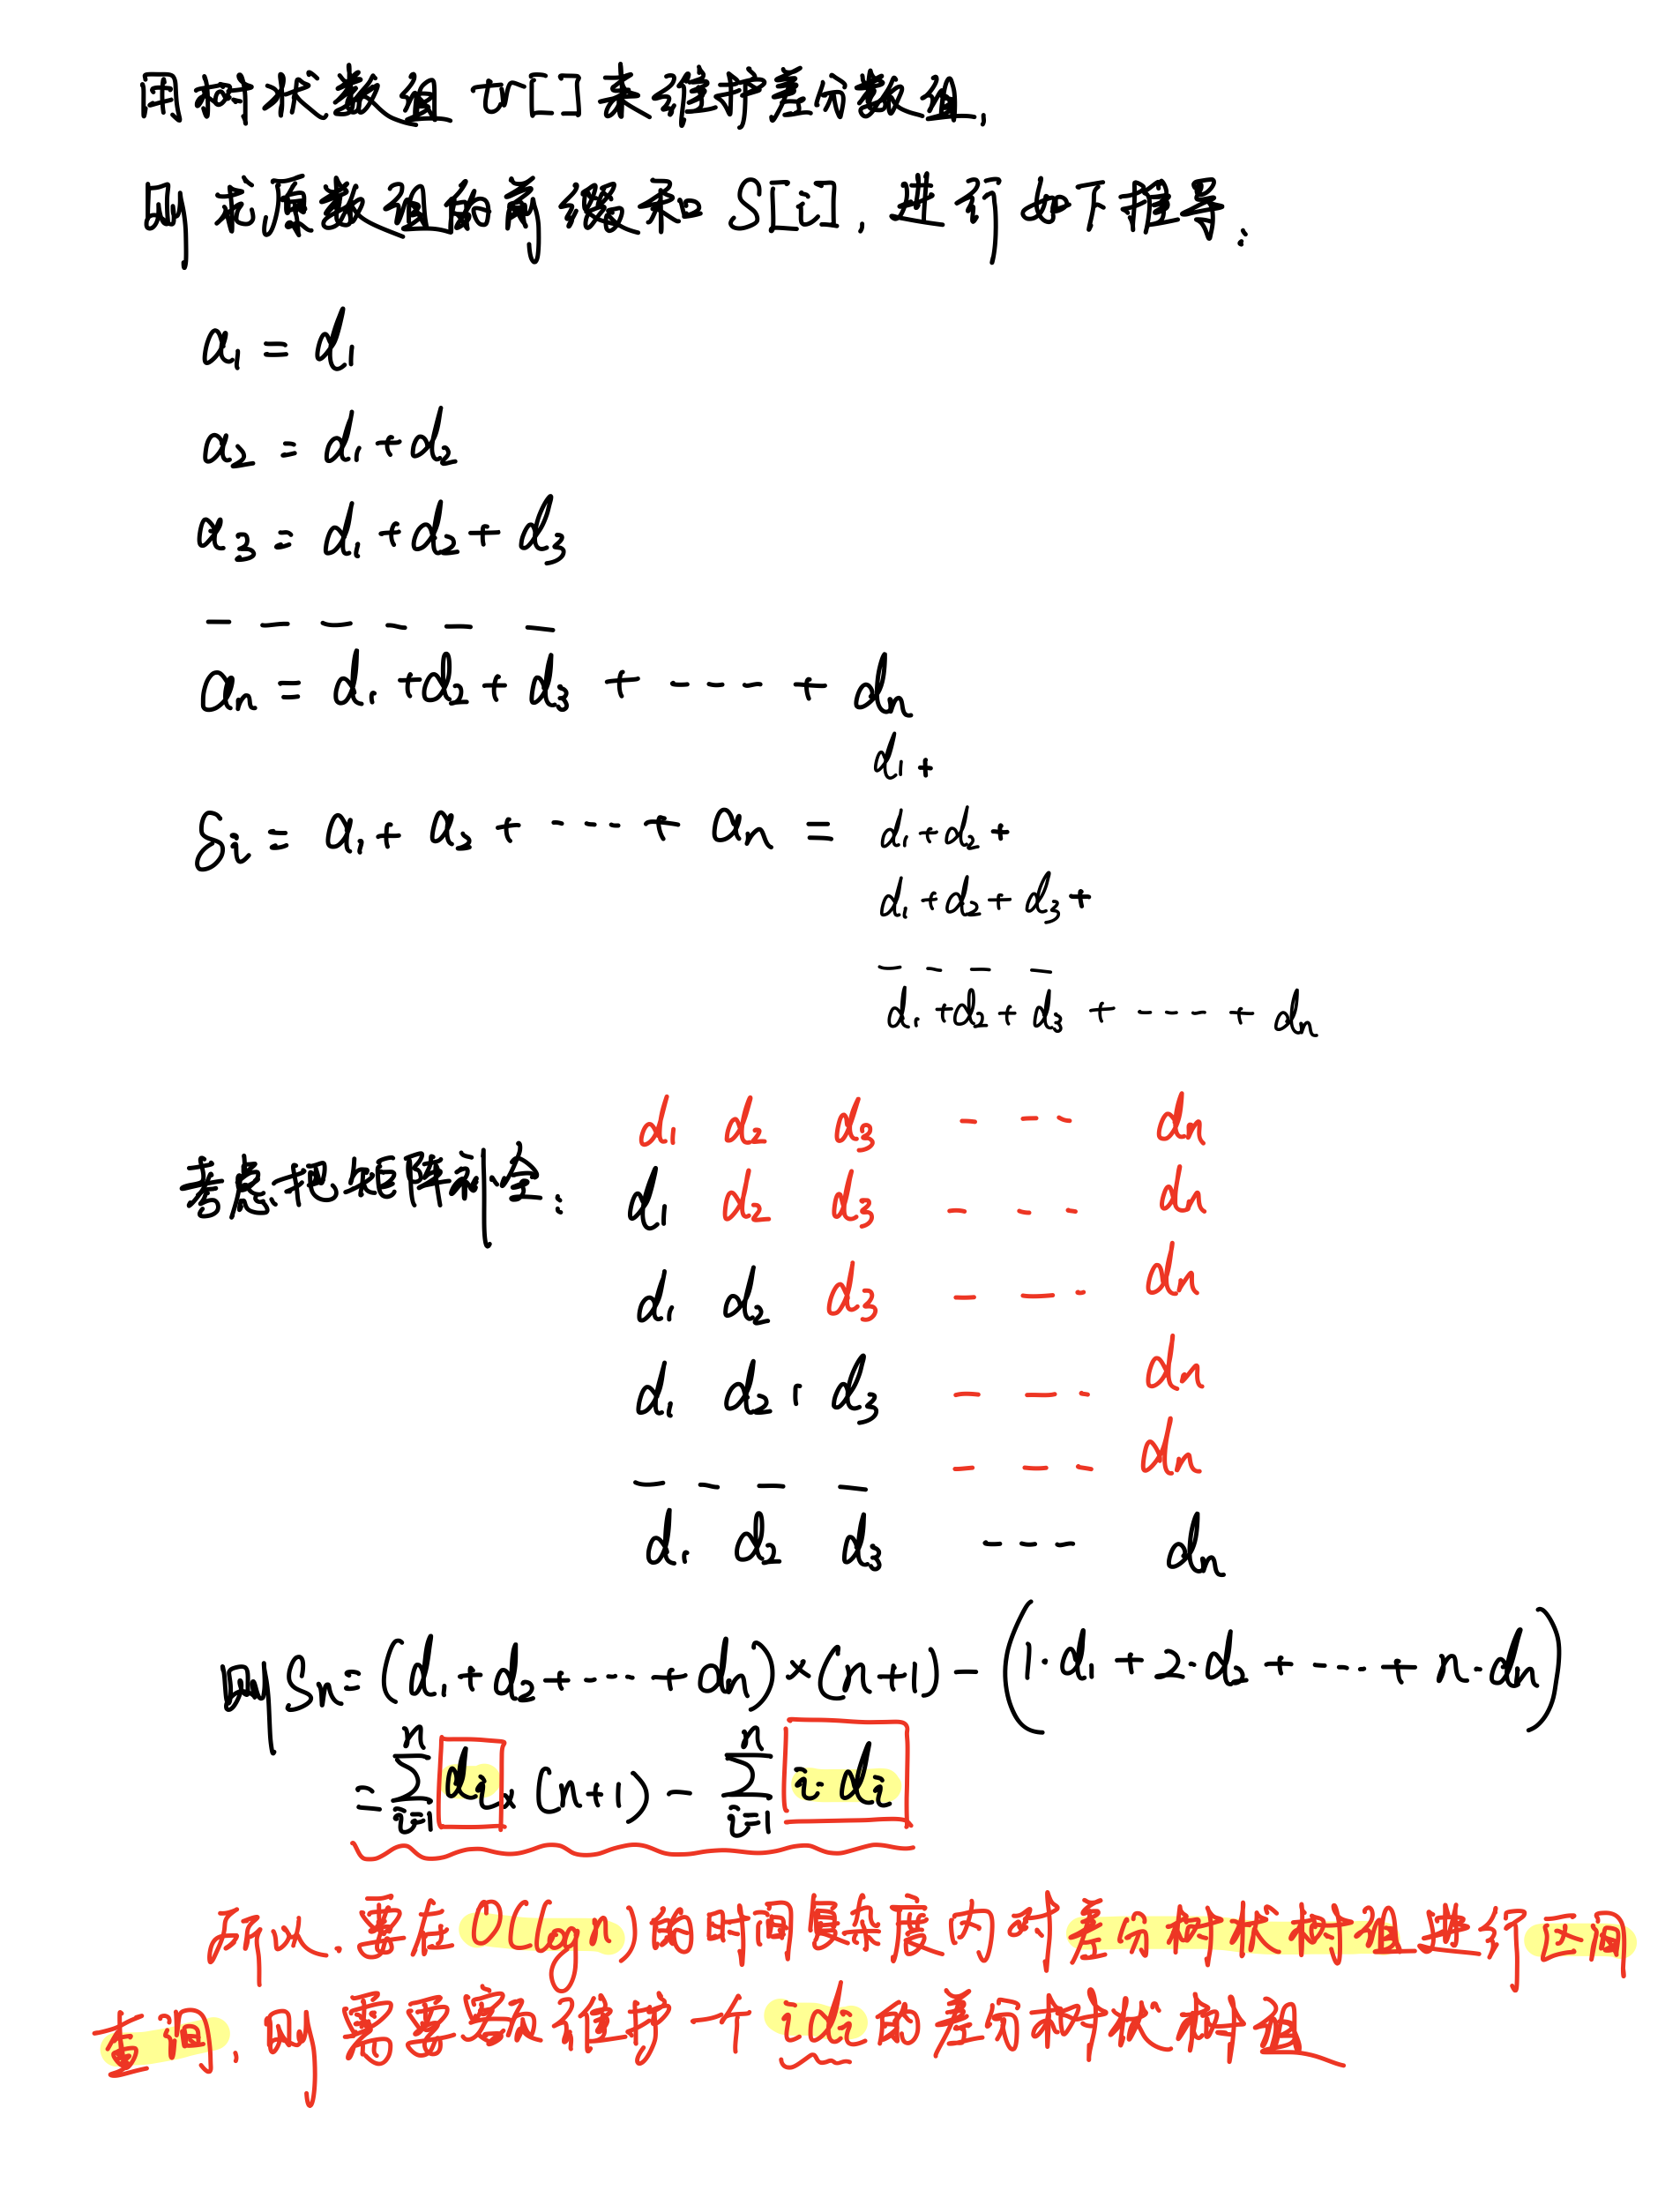 用树状数组 tr[]来维护差分数组,
则求原数组的前缀和 S[i], 进行如下推导:
a₁ = d₁
a₂ = d₁+d₂
a₃ = d₁+d₂+d₃
- - - - - -
aₙ = d₁+d₂+d₃ + ---- + dₙ
Sᵢ = a₁+a₂+---+aₙ =
d₁+
d₁+d₂+
d₁+d₂+d₃+
- - - -
d₁+d₂+d₃+----+dₙ
考虑把矩阵补全:
d₁ d₂ d₃ --- dₙ
d₁ d₂ d₃ --- dₙ
d₁ d₂ d₃ --- dₙ
d₁ d₂ d₃ --- dₙ
- - - - --- dₙ
d₁ d₂ d₃ --- dₙ
则 Sₙ = (d₁+d₂+----+dₙ)×(n+1) - (1·d₁+2·d₂+----+n·dₙ)
= ∑ⁿᵢ₌₁ dᵢ × (n+1) - ∑ⁿᵢ₌₁ i·dᵢ
所以.要在O(logn)的时间复杂度内对差分树状树组进行区间
查询,则需要客户维护一个 idᵢ的差分树状树组